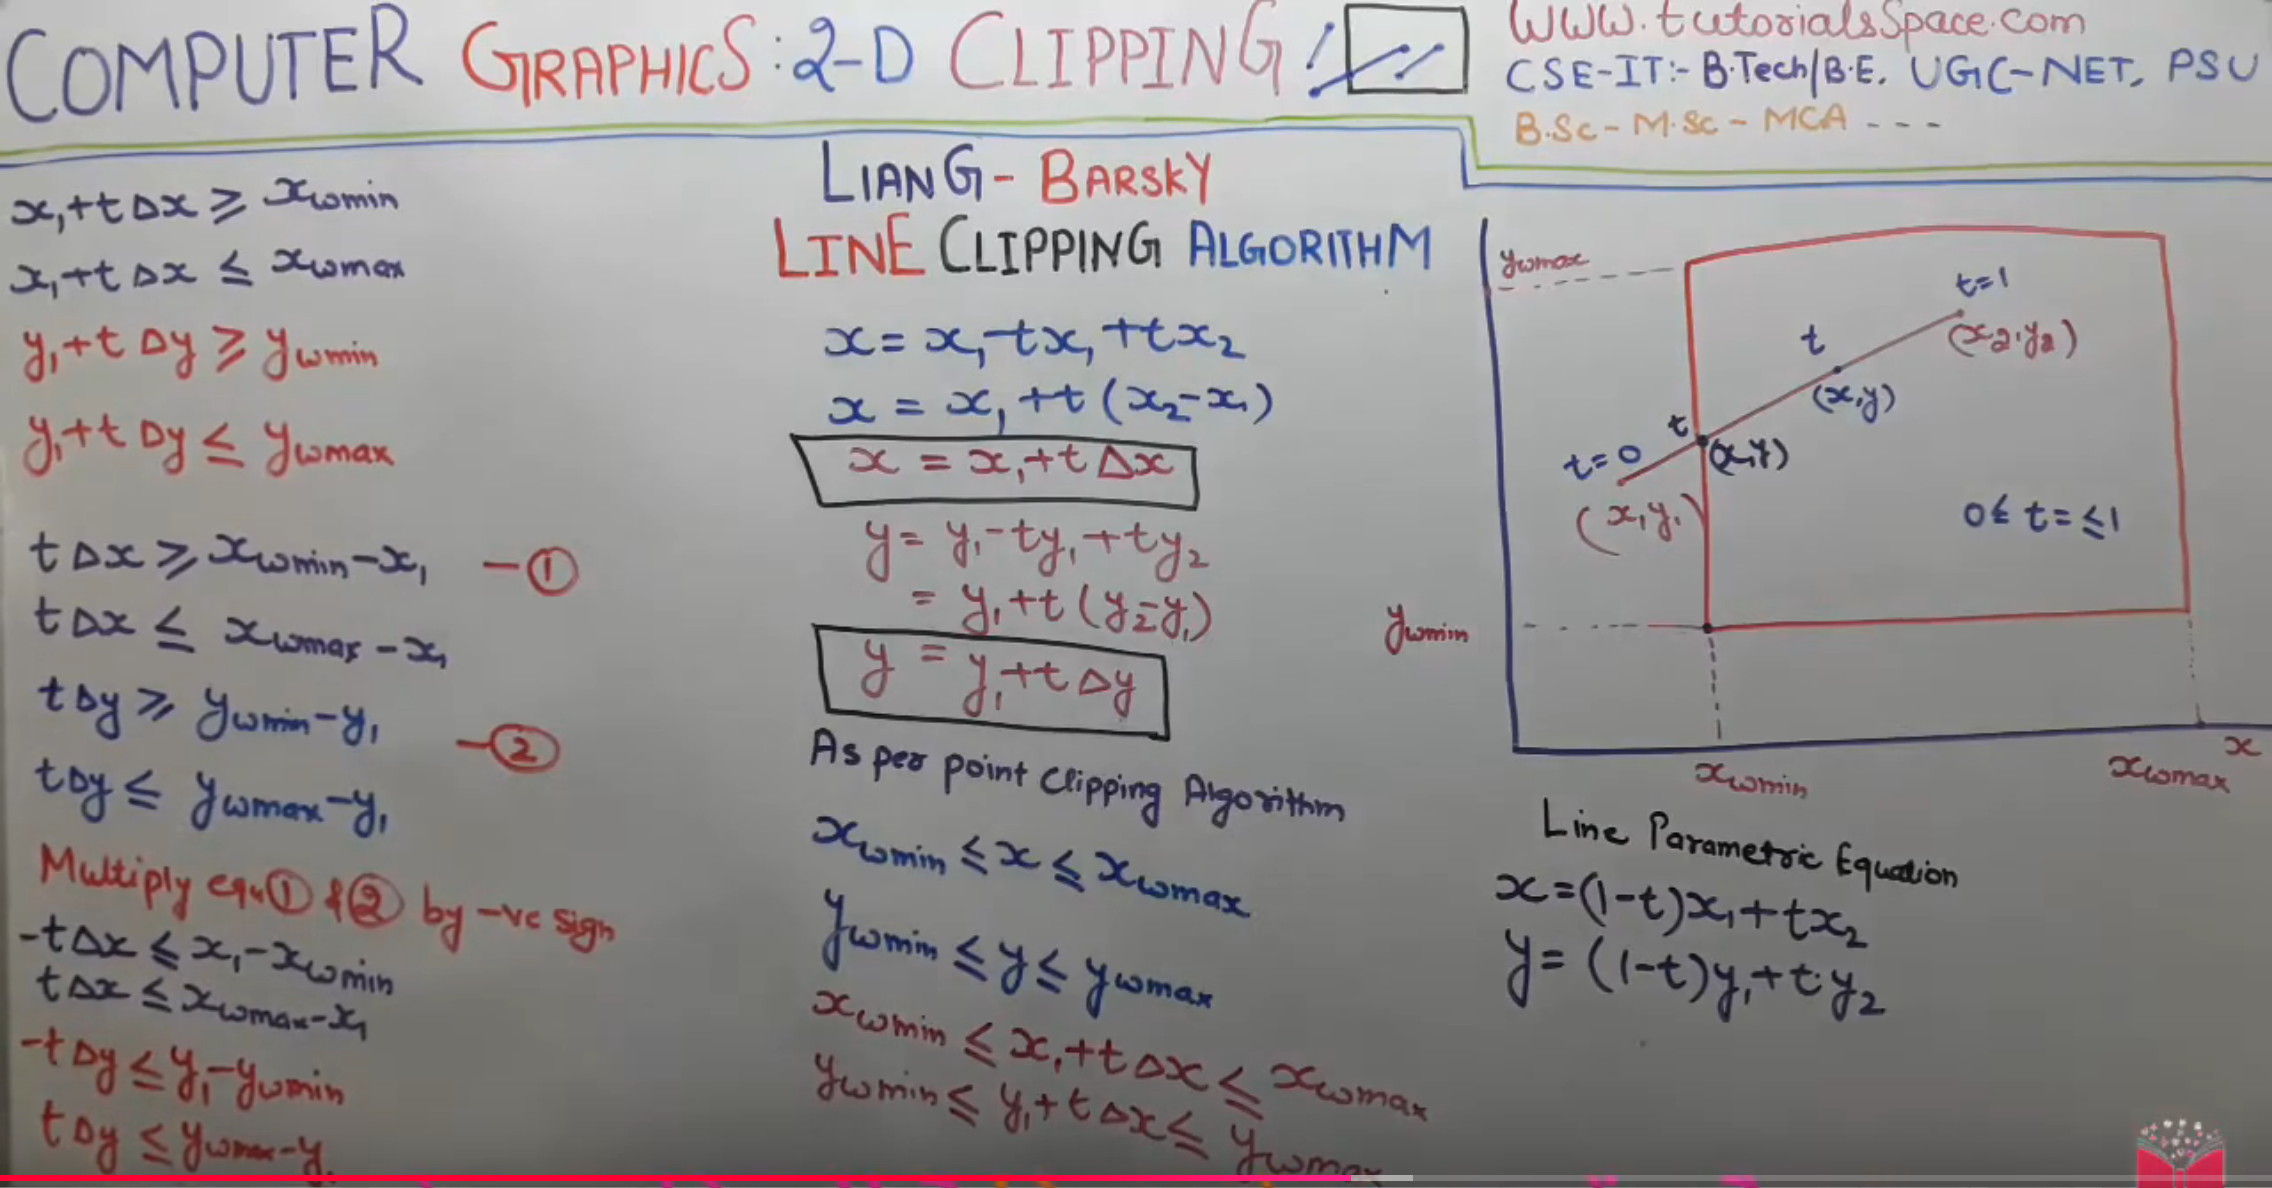 COMPUTER GRAPHICS: 2-D CLIPPING
www.tutorialsSpace.com
CSE-IT:- B.Tech/B.E, UGC-NET, PSU
B.Sc - M.Sc - MCA - - -
x₁+tΔx ≥ xwmin
x₁+tΔx ≤ xwmax
y₁+tΔy ≥ ywmin
y₁+tΔy ≤ ywmax
tΔx ≥ xwmin-x₁ -①
tΔx ≤ xwmax-x₁
tΔy ≥ ywmin-y₁ -②
tΔy ≤ ywmax-y₁
Multiply equ① & ② by -ve sign
-tΔx ≤ x₁-xwmin
tΔx ≤ xwmax-x₁
-tΔy ≤ y₁-ywmin
tΔy ≤ ywmax-y₁
LIANG-BARSKY
LINE CLIPPING ALGORITHM
x = x₁-tx₁+tx₂
x = x₁+t(x₂-x₁)
x = x₁+tΔx
y = y₁-ty₁+ty₂
= y₁+t(y₂-y₁)
y = y₁+tΔy
As per point Clipping Algorithm
xwmin ≤ x ≤ xwmax
ywmin ≤ y ≤ ywmax
xwmin ≤ x₁+tΔx ≤ xwmax
ywmin ≤ y₁+tΔx ≤ ywmax
ywmax
t=1
(x₂,y₂)
t
(x,y)
t
(x,y)
t=0
(x₁y₁)
0≤ t=≤1
ywmin
xwmin
xwmax
x
Line Parametric Equation
x=(1-t)x₁+tx₂
y=(1-t)y₁+t.y₂